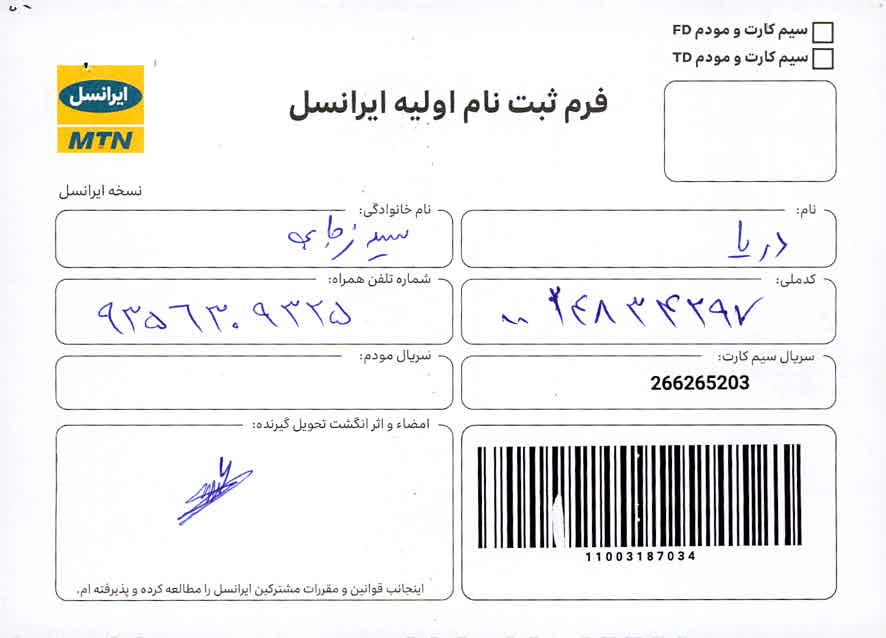 سیم کارت و مودم FD
سیم کارت و مودم TD
ایرانسل
MTN
فرم ثبت نام اولیه ایرانسل
نسخه ایرانسل
نام:
دریا
نام خانوادگی:
کدملی:
شماره تلفن همراه:
۹۳۵۶۳۰۹۳۲۵
سریال سیم کارت:
266265203
سریال مودم:
امضاء و اثر انگشت تحویل گیرنده:
11003187034
اینجانب قوانین و مقررات مشترکین ایرانسل را مطالعه کرده و پذیرفته ام.